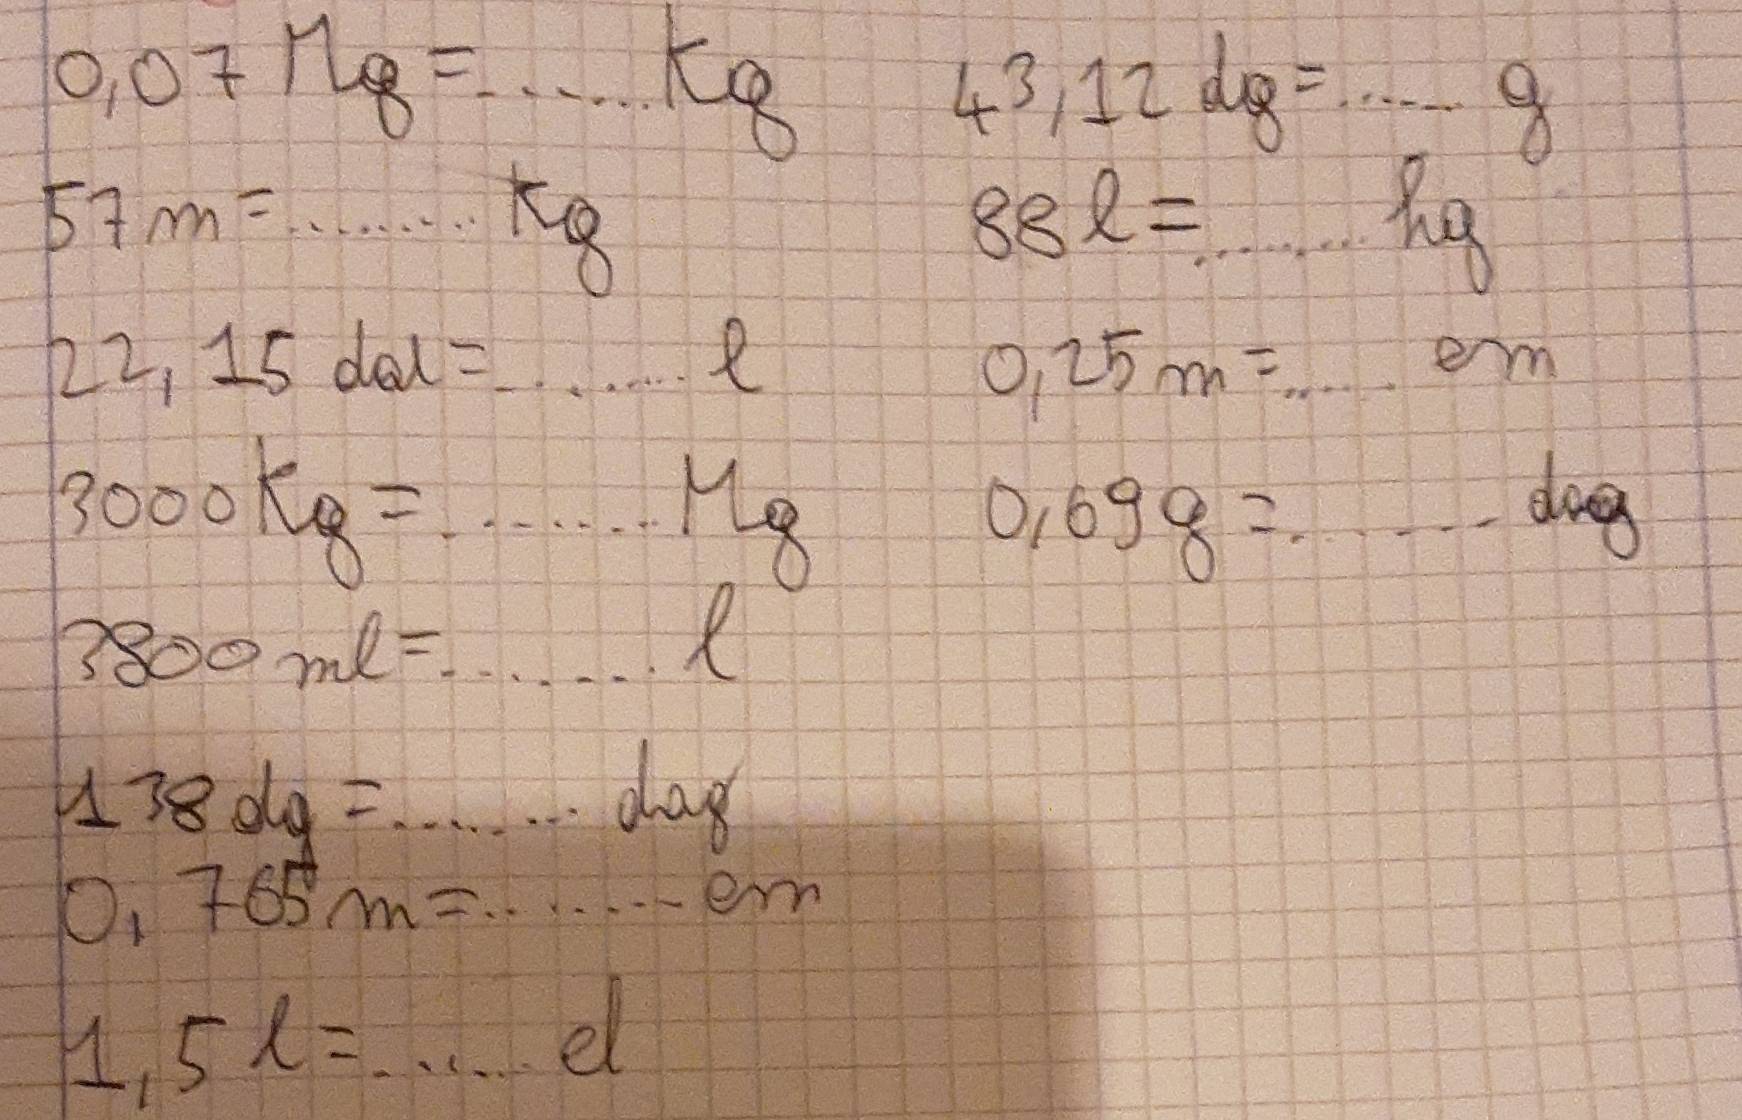 0,07 Mg = ....... Kg
57 m = ......... Kg
22,15 dal = ......... l
3000 Kg = ......... Mg
3800 ml = ........ l
138 dg = ......... dag
0,765 m = ......... cm
1,5 l = ....... cl
43,12 dg = ....... g
88 l = ........ hg
0,25 m = ...... cm
0,69 g = ........ dag